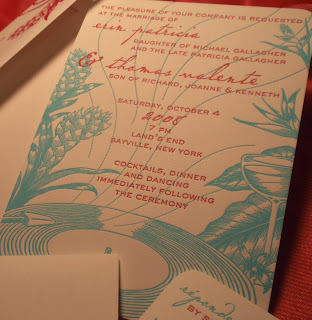 THE PLEASURE OF YOUR COMPANY IS REQUESTED
AT THE MARRIAGE OF
erin patricia
DAUGHTER OF MICHAEL GALLAGHER
AND THE LATE PATRICIA GALLAGHER
& thomas valente
SON OF RICHARD, JOANNE & KENNETH
SATURDAY, OCTOBER 4
2008
7 PM
LAND'S END
SAYVILLE, NEW YORK
COCKTAILS, DINNER
AND DANCING
IMMEDIATELY FOLLOWING
THE CEREMONY
BY